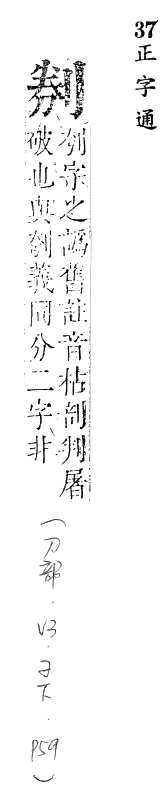 37 正字通
刳字之譌舊註音枯刳判屠
破也與刳義同分二字非
(刀部.V3.子下.P59)